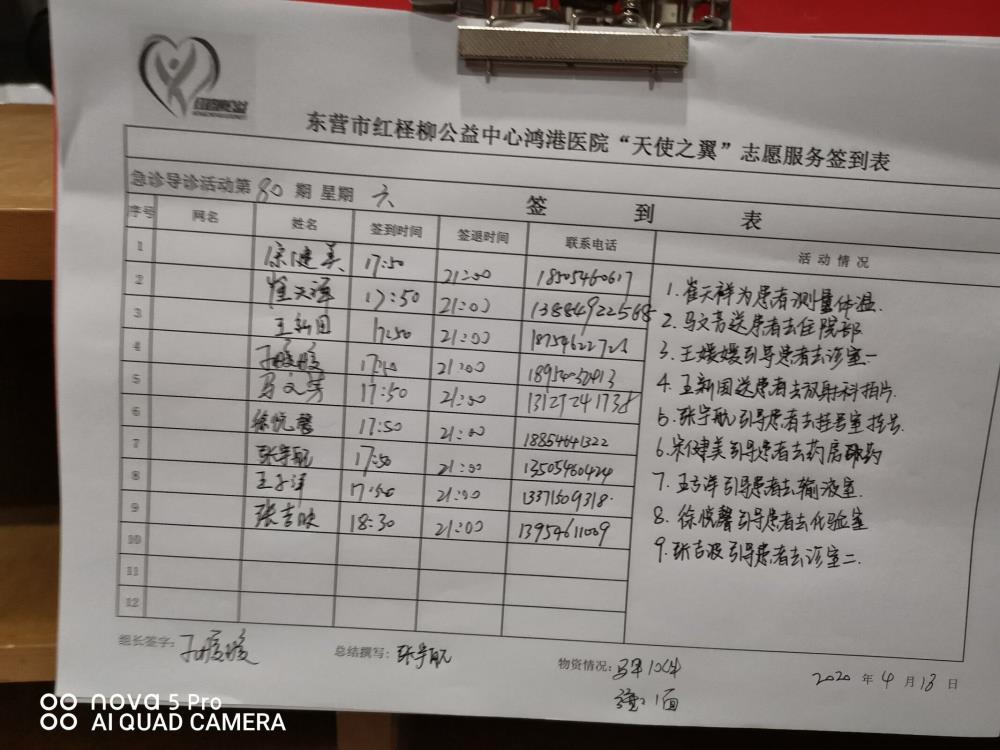 东营市红柽柳公益中心鸿港医院“天使之翼”志愿服务签到表
急诊导诊活动第80期 星期六 签到表
序号 网名 姓名 签到时间 签退时间 联系电话 活动情况
1 宋健美 17:50 21:00 18505460617
2 崔天祥 17:50 21:00 13884922568
3 王新国 17:50 21:00
4 21:00
5 马文芳 17:50 21:00 13127241738
6 徐悦馨 17:50 21:00 18854641322
7 张宇航 17:50 21:00 13505460424
8 17:50 21:00 13371509318
9 张吉波 18:30 21:00 13954611009
10
11
12
1. 崔天祥为患者测量体温.
2. 马文芳送患者去住院部
3. 王媛媛引导患者去诊室一
4. 王新国送患者去放射科拍片.
5. 张宇航引导患者去挂号室挂号.
6. 宋健美引导患者去药房取药
7. 引导患者去输液室.
8. 徐悦馨引导患者去化验室
9. 张吉波引导患者去诊室二.
组长签字: 总结撰写: 张宇航 物资情况: 10件
1面
2020年4月18日
nova 5 Pro
AI QUAD CAMERA